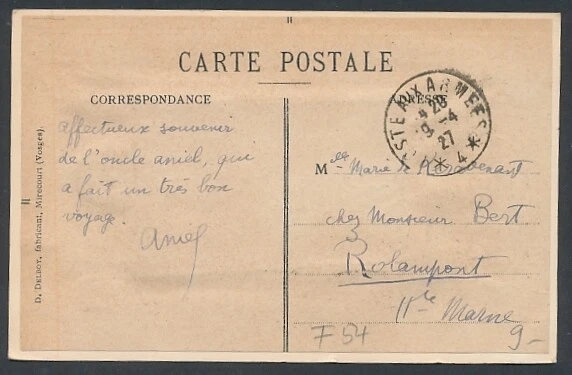 CARTE POSTALE
CORRESPONDANCE
ADRESSE
affectueux souvenir
de l'oncle amiel, qui
a fait un très bon
voyage.
amiel
POSTE AUX ARMEES * 4 *
20-4
27
Mlle Marie de
chez Monsieur Bert
Rolampont
Hte Marne
F 54
9-
D. DELBOY, fabricant, Mirecourt (Vosges).